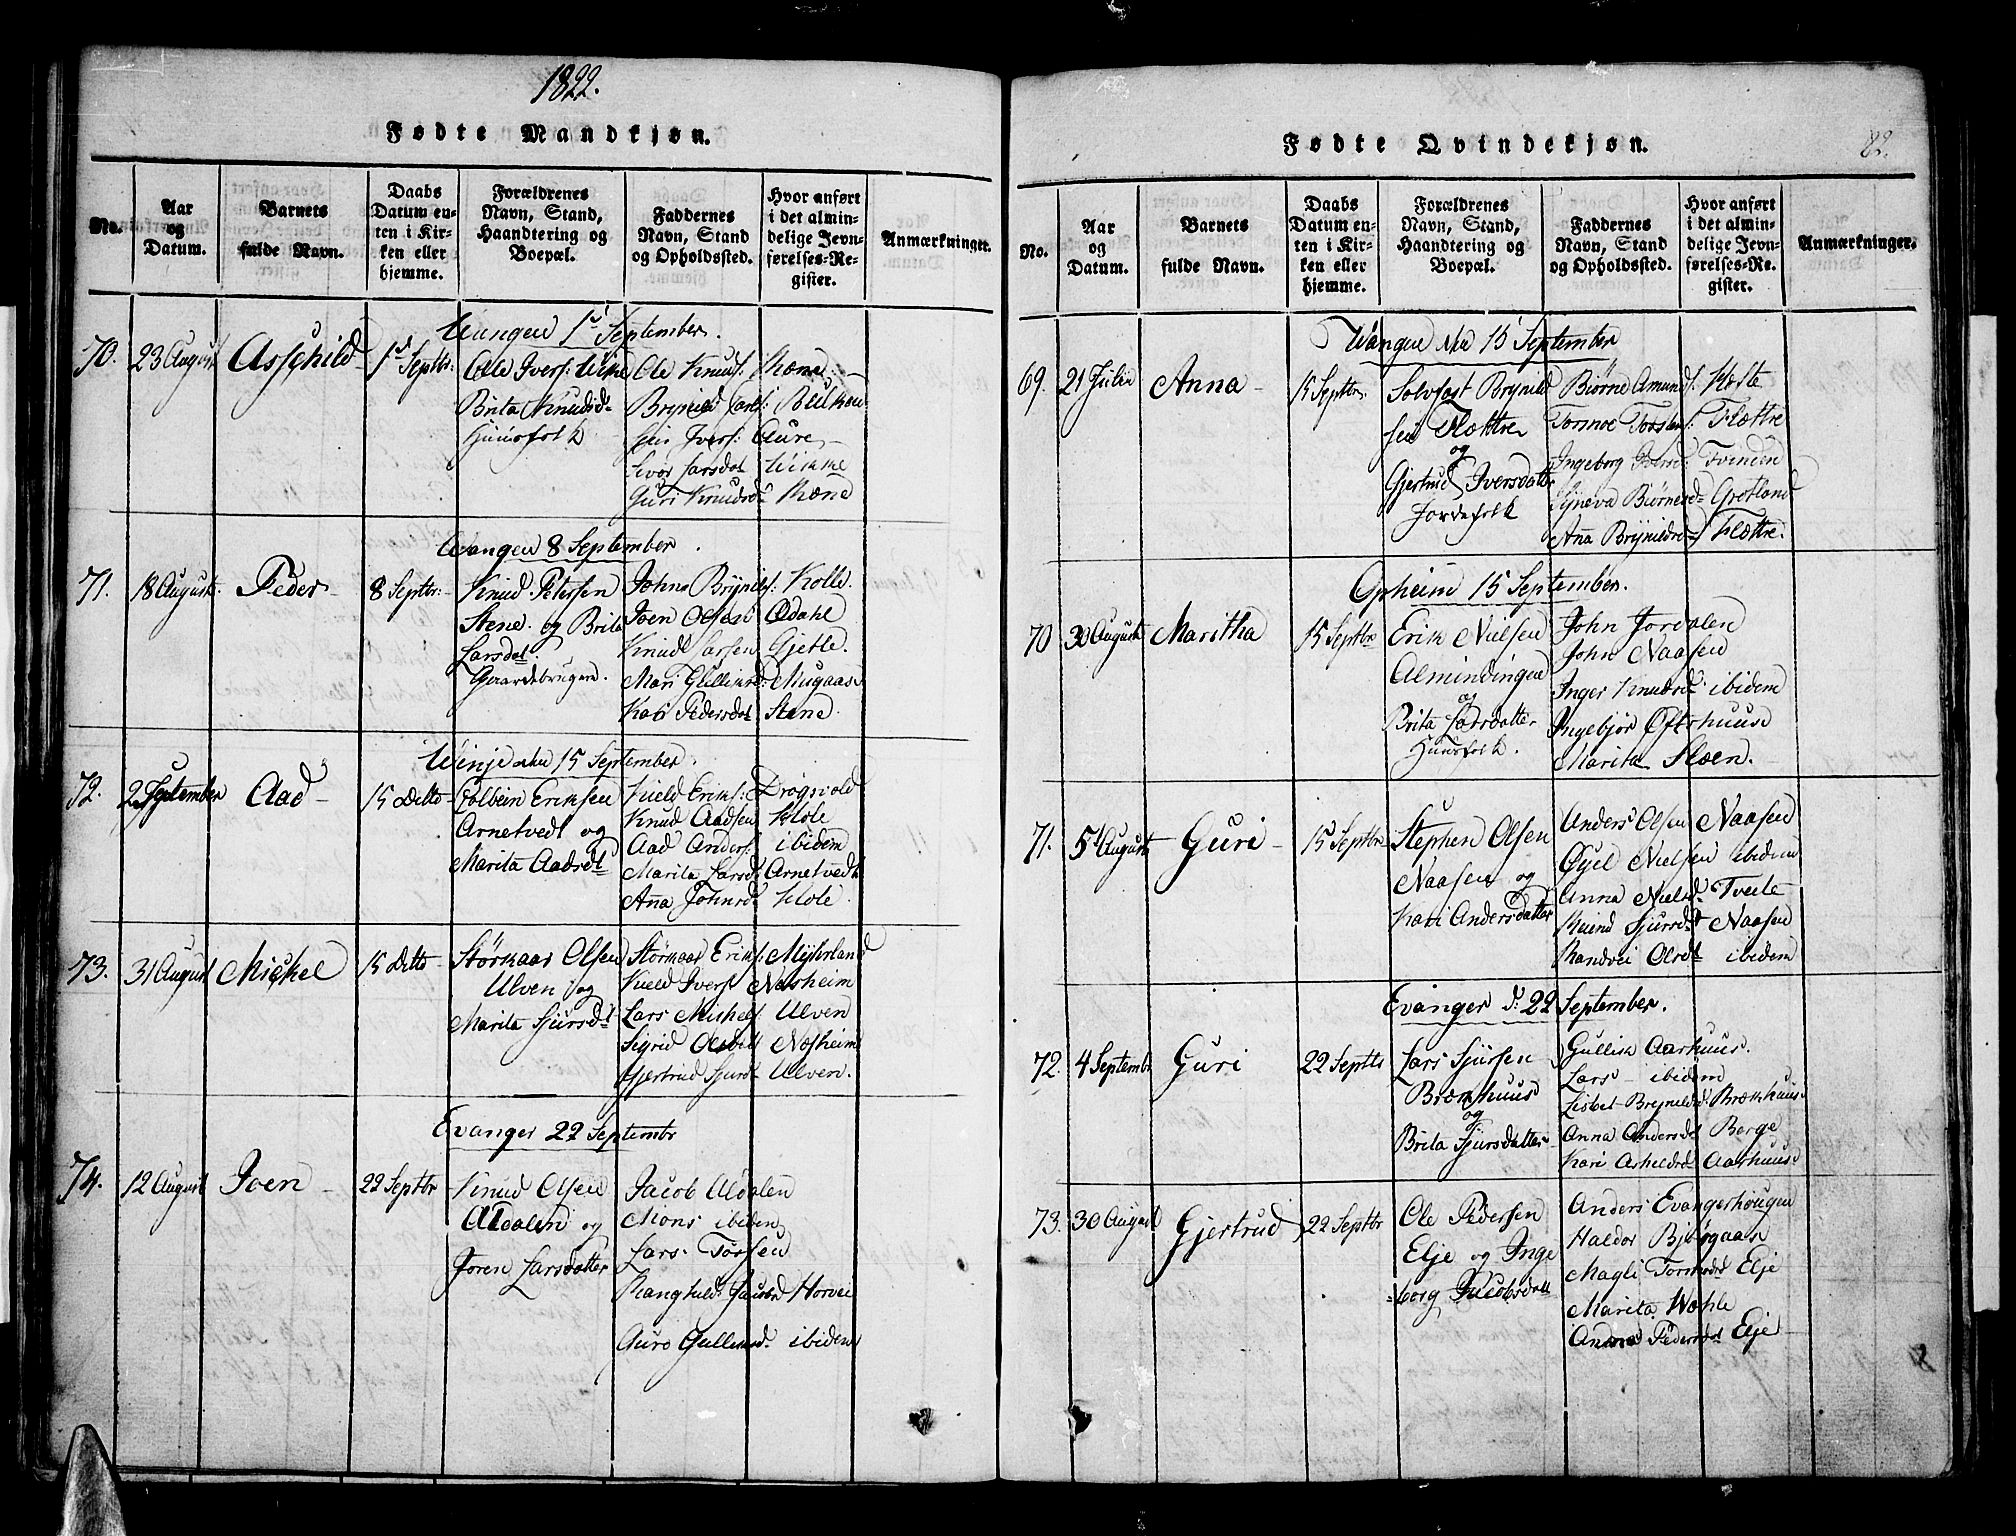 1822.
Fødte Mandkjøn.
No.
Aar
og
Datum.
Barnets
fulde Navn.
Daabs
Datum en-
ten i Kir-
ken eller
hjemme.
Forældrenes
Navn, Stand,
Haandtering og
Boepæl.
Faddernes
Navn, Stand
og Opholdssted.
Hvor anført
i det almin-
delige Jevn-
førelses-Re-
gister.
Anmærkninger.
Wangen 1ste September.
70. 23 August Asschild 1ste Septbr:
Olle Ivers: Wikne
Brita Knudsd
Huusfolk
Ole Knuds: Mæne
Brynild Lars:
Iver: Aure
Larsdat Wikne
Guri Knudsd Mæne
Wangen 8 September.
71. 18 August Peder 8 Septbr:
Knud Petersen
Stene og Brita
Larsdat.
Gaardebrugere.
Johne Brynild: Kolle.
Joen Olsen Ødahl
Knud Larsen Gjetle.
Mari Gulliksd: Mugaas
Kari Pedersdat Stene
Winje den 15 September.
72. 2 September Aad 15 Ditto
Colbein Eriksen
Arnetvedt og
Marita Aadsdt
Kield Eriks: Drøgsvold
Knud Aadsen Kløle
Aad Anders: ibidem
Marita Larsd Arnetvedt
Anna Johnsd Kløle
73. 31 August Mickel 15 Ditto
Størkaar Olsen
Ulven og
Marita Sjursdt
Størkaar Eriks: Myhrland
Kield Ivers Næsheim
Lars Mickels Ulven
Sigrid Næsheim
Gjertrud Sjursdt Ulven.
Evanger 22 Septembr
74. 12 August Joen 22 Septbr
Knud Olsen
Aldalen og
Joren Larsdatter
Jacob Aldalen
Mons ibidem
Lars
Ranghild Jacobsd Horvei
Guro Gulliksd. ibidem
Fødte Qvindekjøn.
82.
No.
Aar
og
Datum.
Barnets
fulde Navn.
Daabs
Datum en-
ten i Kir-
ken eller
hjemme.
Forældrenes
Navn, Stand,
Haandtering og
Boepæl.
Faddernes
Navn, Stand
og Opholdssted.
Hvor anført
i det almin-
delige Jevn-
førelses-Re-
gister.
Anmærkninger.
Wangen den 15 September
69. 21 Julii Anna 15 Septbr.
Solvfast Brynild
sen Flættre
og
Gjertrud Iversdatter
Jordefolk
Biørne Amunds: Kløste
Tormoe Torsten: Flættre
Ingeborg Tvinden
Synneva Biørnesd Grotland
Anna Brynildsd Flættre.
Opheim 15 September.
70 30 August Maritha 15 Septbr
Erik Nielsen
Almindingen
og
Brita Larsdatter
Huusfolk.
John Jordalen
John Naasen
Inger Knudsd: ibidem
Ingebjør Øfsthuus
Marita Sloen.
71. 5 August Guri 15 Septbr
Stephen Olsen
Naasen og
Kari Andersdatter
Anders Olsen Naasen
Nielsen ibidem
Anna Nielsd. Tveite
Sjursdt Naasen
Randvei Olsdt ibidem
Evanger d: 22 September.
72. 4 Septembr Guri 22 Septbr
Lars Sjursen
Brækhuus
og
Brita Sjursdatter
Gullik Aarhuus.
Lars ibidem
Lisbet Brynildsd Brækhuus
Anna Andersdt Berge
Kari Askeldsd Aarhuus
73. 30 August Gjertrud 22 Septbr
Ole Pedersen
Elje og Inge
borg Jacobsdatt
Anders Evangerhougen
Haldor Bjørgaas
Magli Tormodsd Elje
Marita Wæhle
Anna Pedersdt Elje